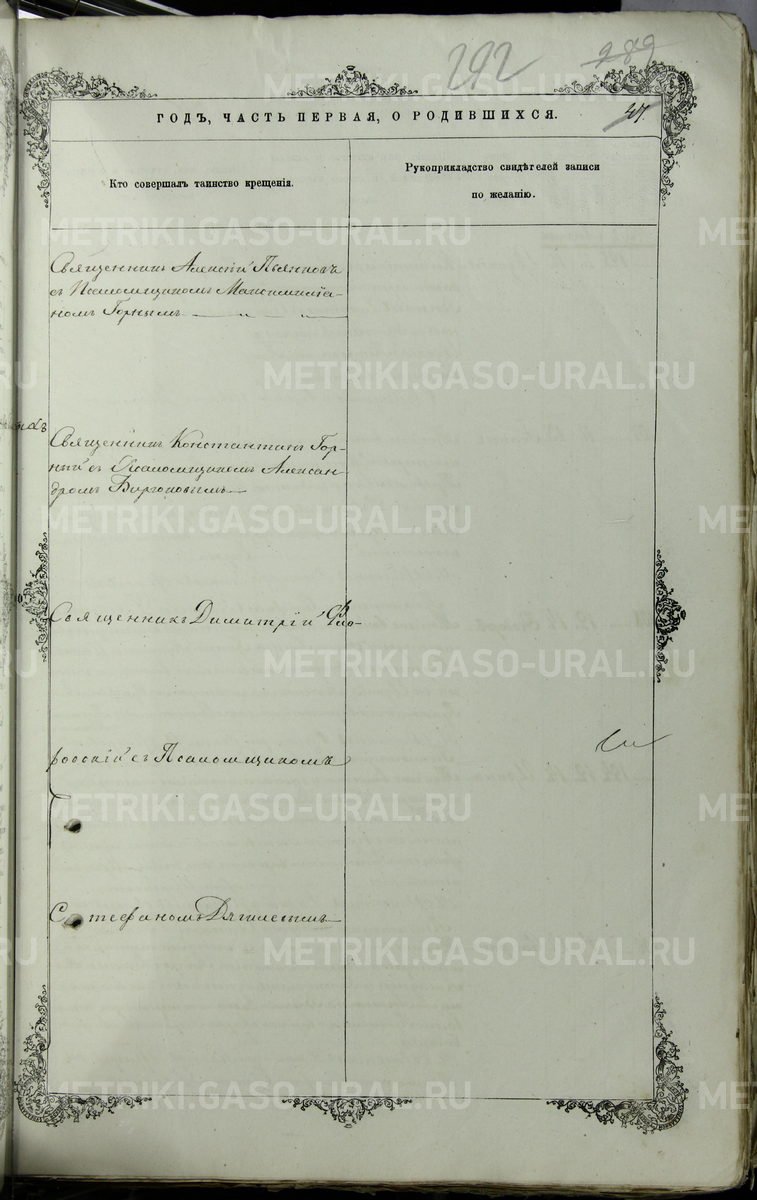 292 289
ГОДЪ, ЧАСТЬ ПЕРВАЯ, О РОДИВШИХСЯ.
Кто совершалъ таинство крещенія.
Рукоприкладство свидѣтелей записи
по желанію.
Священникъ Алексій Пьянковъ
съ Псаломщикомъ Максимиліа-
номъ Горнымъ
Священникъ Константинъ Гор-
ный съ Псаломщикомъ Алексан-
дромъ
Священникъ Димитрій Фло-
ровскій съ Псаломщикомъ
Стефаномъ
METRIKI.GASO-URAL.RU